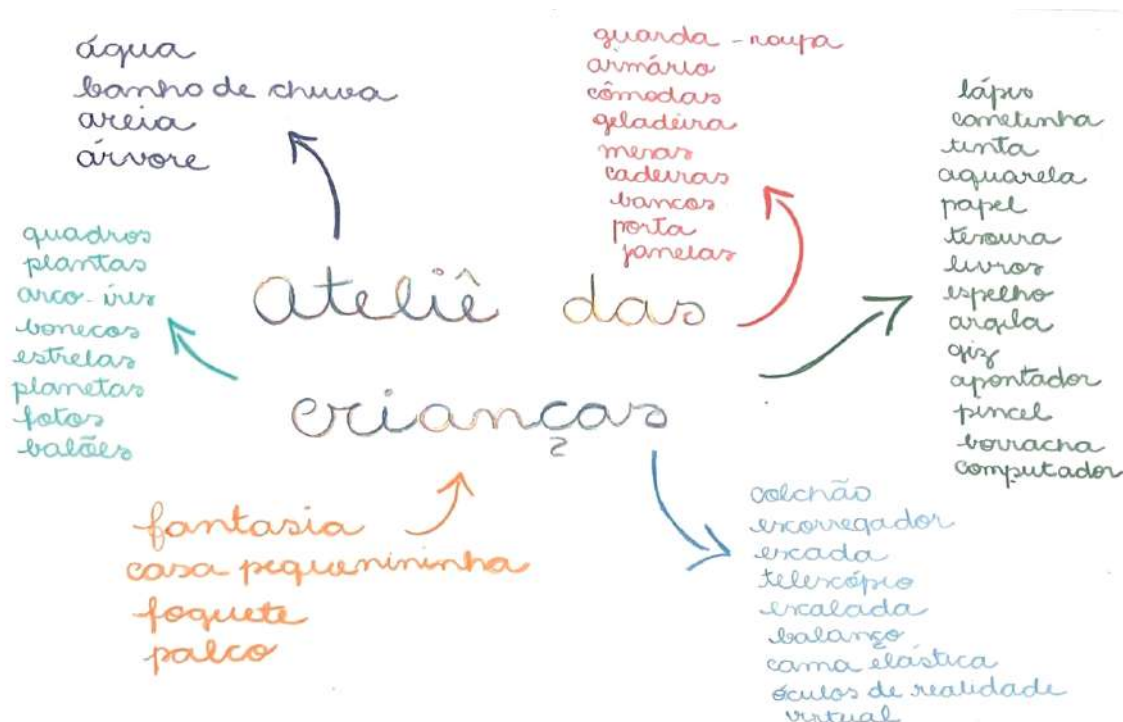 água
banho de chuva
areia
árvore
guarda-roupa
armário
cômodas
geladeira
mesas
cadeiras
bancos
porta
janelas
lápis
canetinha
tinta
aquarela
papel
tesoura
livros
espelho
argila
giz
apontador
pincel
borracha
computador
quadros
plantas
arco-íris
bonecos
estrelas
planetas
fotos
balões
ateliê das
crianças
fantasia
casa pequenininha
foguete
palco
colchão
escorregador
escada
telescópio
escalada
balanço
cama elástica
óculos de realidade
virtual